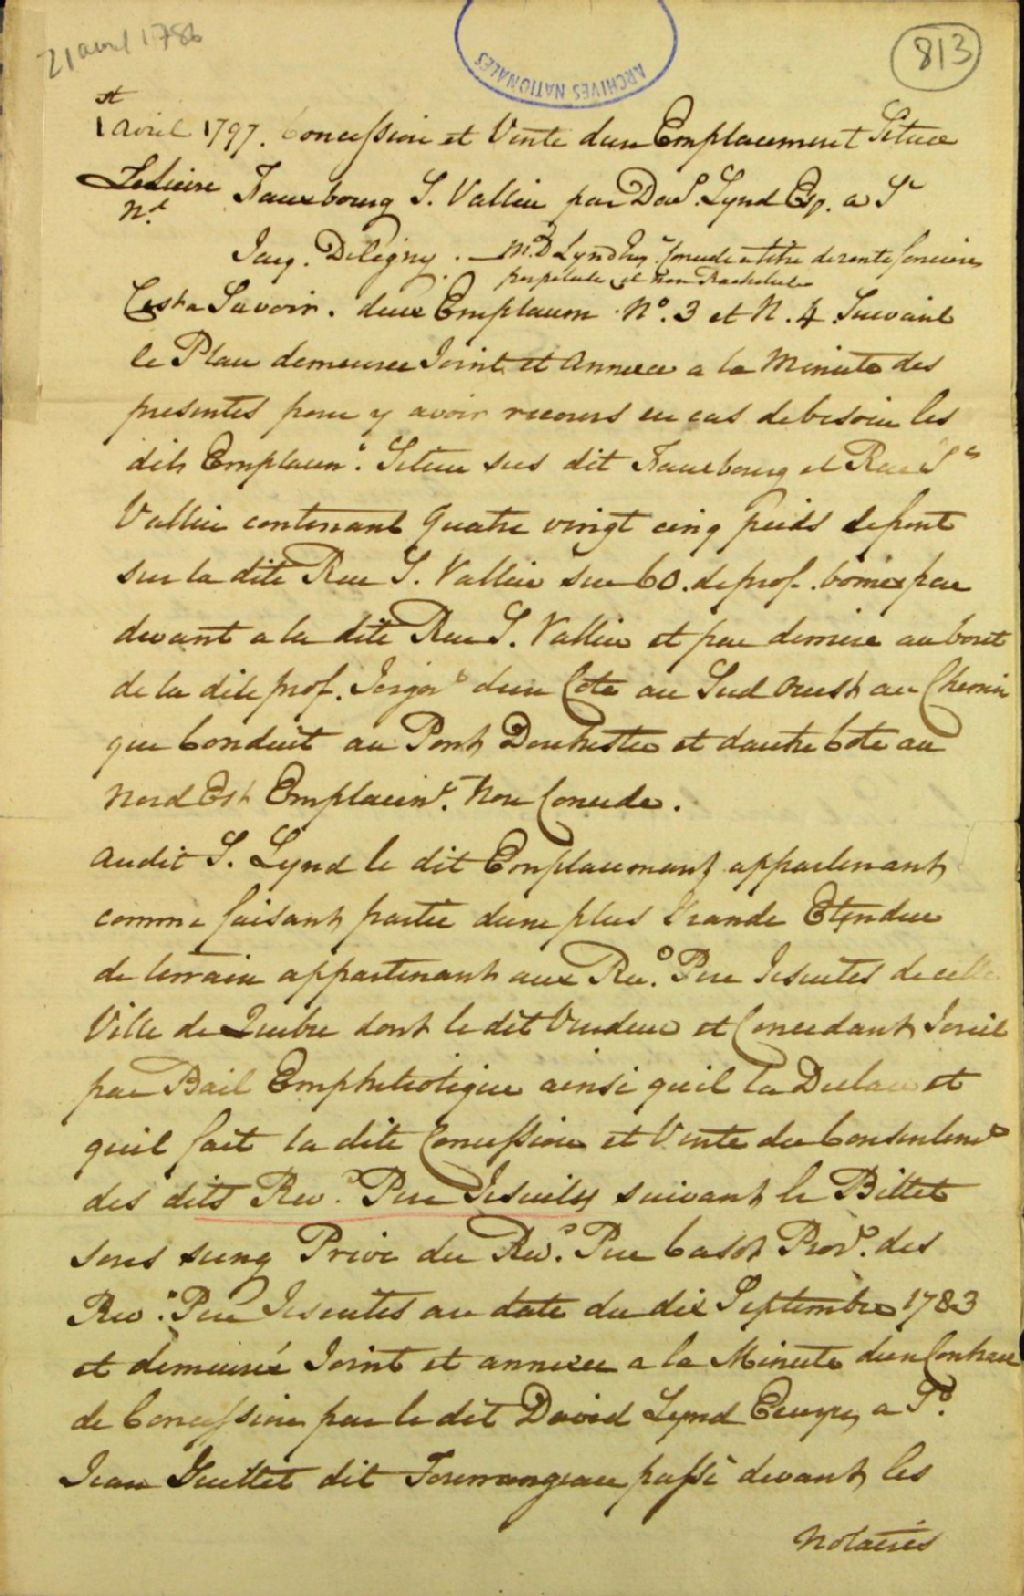 21 avril 1786
ARCHIVES NATIONALES
813
st
1 avril 1797. Concession et Vente dun Emplacement Situé
Lelievre Fauxbourg S. Vallier par Dav.d Lynd Esq. a Sr
N.re
Jacq. Deligny. — Mr. D Lynd Esq.r Concede a titre de rente fonciere
perpetuele et non Rachetable
Cest a Savoir. deux Emplacem N.o 3 et N. 4 Suivant
le Plan demeuree Joint et Annexee a la Minute des
presentes pour y avoir recours en cas de besoin les
dits Emplacem.s Situee sus dit Fauxbourg et Rue S.t
Vallier contenant Quatre vingt cinq pieds de front
sur la dite Rue S. Vallier sur 60. de prof. bornés par
devant a la dite Rue S. Vallier et par derriere au bout
de la dite prof. Joign.t dun Coté au Sud Ouest au Chemin
que Conduit au Pont Dorchester et dautre Coté au
Nord Est Emplacem.t Non Concede.
audit S. Lynd le dit Emplacement appartenant
comme faisant partie dune plus Grande Etendue
de terrain appartenant aux Rev.d Pere Jesuites de cette
Ville de Quebec dont le dit Vendeur et Concedant Jouit
par Bail Emphiteotique ainsi quil la Declaré et
quil fait la dite Concession et Vente du Consentem.t
des dits Rev.d Pere Jesuites suivant le Billet
sous seing Privé du Rev.d Pere Casot Prov.r des
Rev.d Pere Jesuites au date du dix Septembre 1783
et demeurée Joint et annexee a la Minute dun Contract
de Concession par le dit David Lynd Ecuyer a Sr.
Jean Guillet dit Tourrangeau passé devant les
Notaires